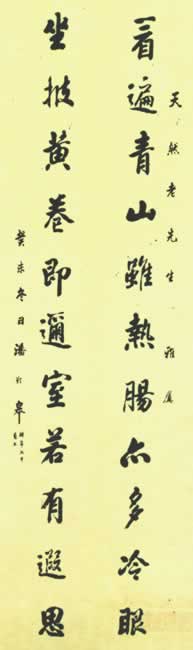 天然老先生 雅
看遍青山雖熱腸亦多冷眼
坐披黃卷即邇室若有遐思
癸未冬日潘齡皋